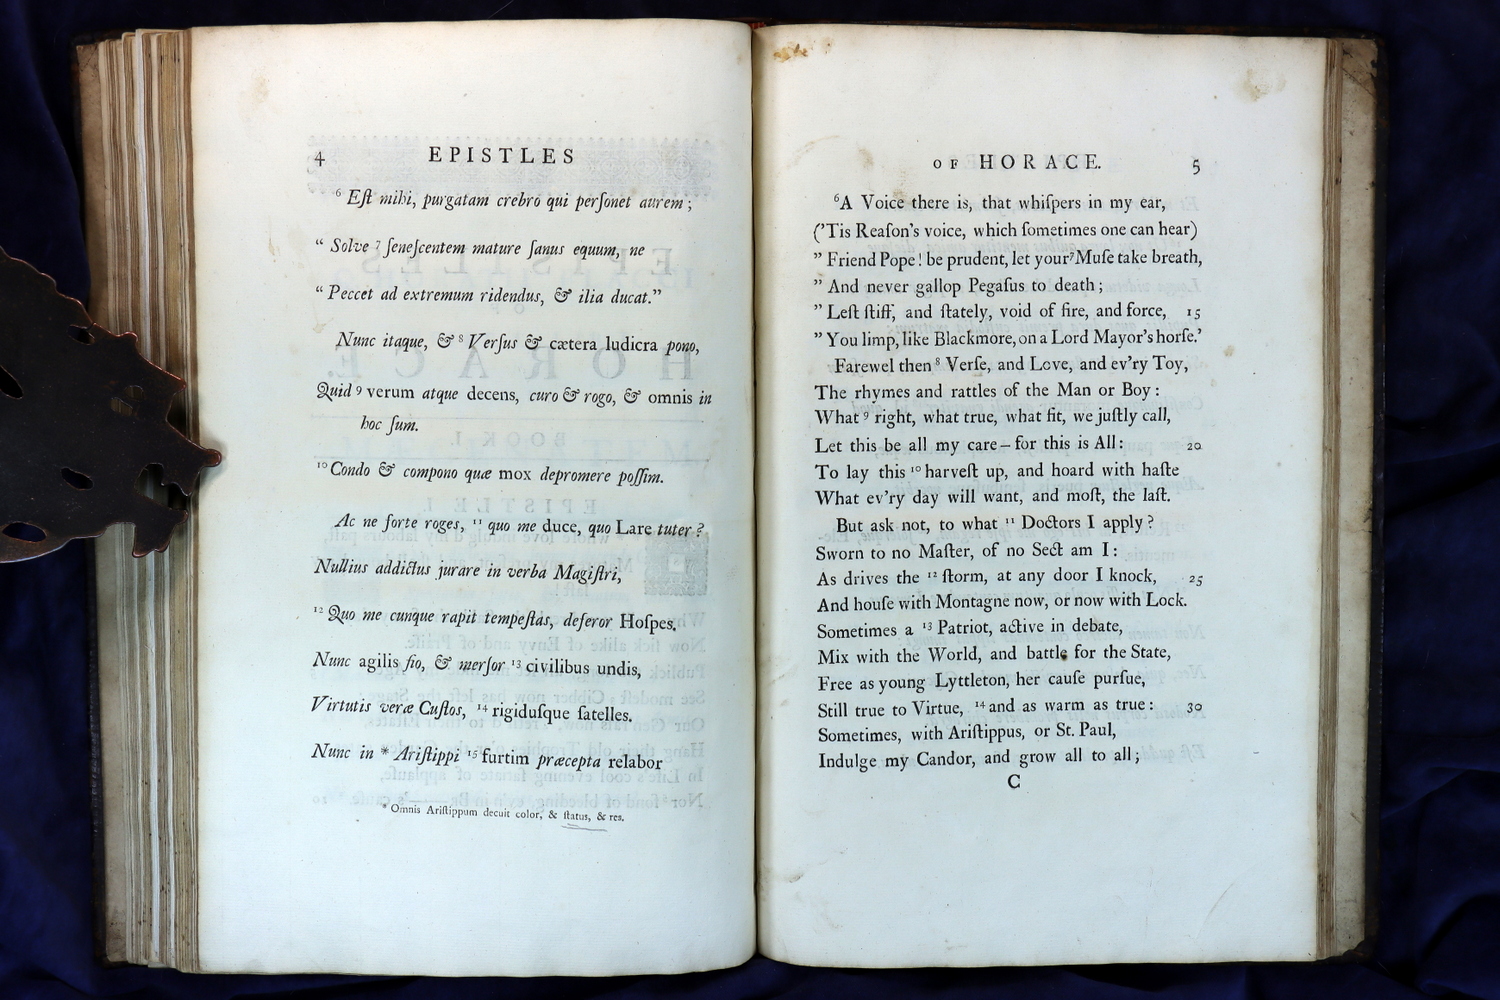 4 EPISTLES
⁶ Eſt mihi, purgatam crebro qui perſonet aurem ;
“ Solve ⁷ ſeneſcentem mature ſanus equum, ne
“ Peccet ad extremum ridendus, & ilia ducat.”
Nunc itaque, & ⁸ Verſus & cætera ludicra pono,
Quid ⁹ verum atque decens, curo & rogo, & omnis in
hoc ſum.
¹⁰ Condo & compono quæ mox depromere poſſim.
Ac ne forte roges, ¹¹ quo me duce, quo Lare tuter ?
Nullius addictus jurare in verba Magiſtri,
¹² Quo me cunque rapit tempeſtas, deferor Hoſpes.
Nunc agilis fio, & merſor ¹³ civilibus undis,
Virtutis veræ Cuſtos, ¹⁴ rigiduſque ſatelles.
Nunc in * Ariſtippi ¹⁵ furtim præcepta relabor
* Omnis Ariſtippum decuit color, & ſtatus, & res.
OF HORACE. 5
⁶A Voice there is, that whiſpers in my ear,
(’Tis Reaſon’s voice, which ſometimes one can hear)
” Friend Pope ! be prudent, let your ⁷ Muſe take breath,
” And never gallop Pegaſus to death ;
” Leſt ſtiff, and ſtately, void of fire, and force, 15
” You limp, like Blackmore, on a Lord Mayor’s horſe.’
Farewel then ⁸ Verſe, and Love, and ev’ry Toy,
The rhymes and rattles of the Man or Boy :
What ⁹ right, what true, what fit, we juſtly call,
Let this be all my care – for this is All : 20
To lay this ¹⁰ harveſt up, and hoard with haſte
What ev’ry day will want, and moſt, the laſt.
But ask not, to what ¹¹ Doctors I apply ?
Sworn to no Maſter, of no Sect am I :
As drives the ¹² ſtorm, at any door I knock, 25
And houſe with Montagne now, or now with Lock.
Sometimes a ¹³ Patriot, active in debate,
Mix with the World, and battle for the State,
Free as young Lyttleton, her cauſe purſue,
Still true to Virtue, ¹⁴ and as warm as true : 30
Sometimes, with Ariſtippus, or St. Paul,
Indulge my Candor, and grow all to all ;
C